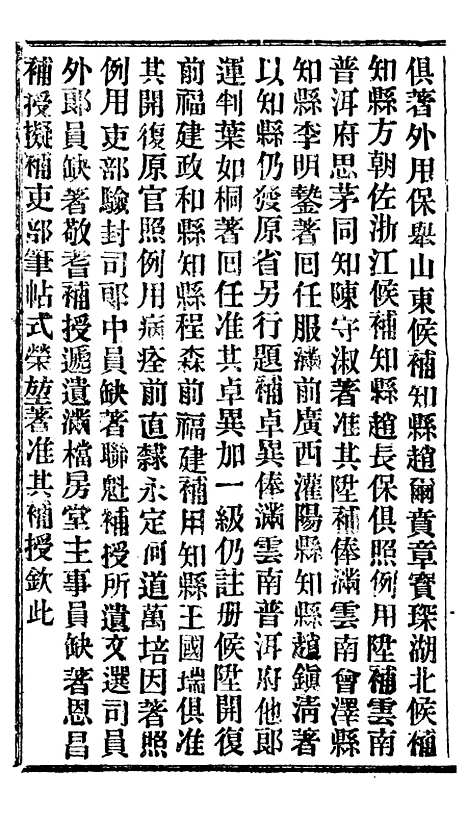 俱著外用保舉山東候補知縣趙爾賁章寳琛湖北候補
知縣方朝佐浙江候補知縣趙長保俱照例用陞補雲南
普洱府思茅同知陳守淑著准其陞補俸滿雲南會澤縣
知縣李明鏊著囘任服滿前廣西灌陽縣知縣趙鎭淸著
以知縣仍發原省另行題補卓異俸滿雲南普洱府他郞
運判葉如桐著囘任准其卓異加一級仍註册候陞開復
前福建政和縣知縣程森前福建補用知縣王國瑞俱准
其開復原官照例用病痊前直隸永定河道萬培因著照
例用吏部驗封司郞中員缺著聯魁補授所遺文選司員
外郞員缺著敬耆補授遞遺滿檔房堂主事員缺著恩昌
補授擬補吏部筆帖式榮堃著准其補授欽此